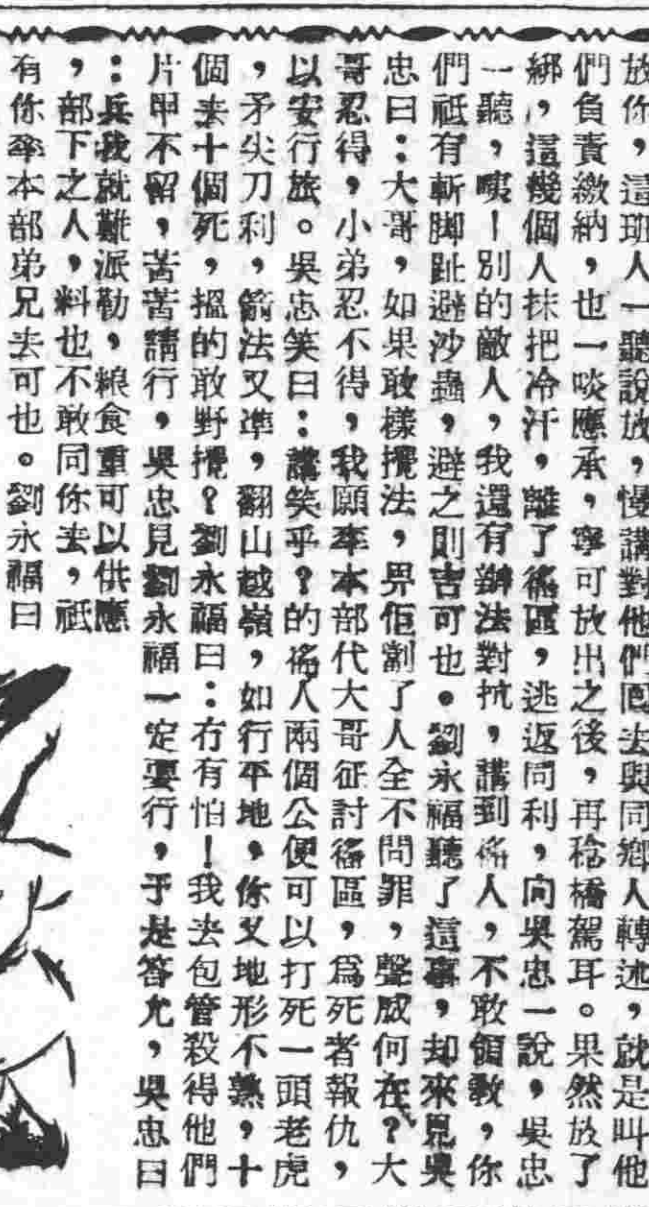 放你，這班人一聽說放，慢講對他們囘去與同鄉人轉述，就是叫他
們負責繳納，也一啖應承，寧可放出之後，再稔橋駕耳。果然放了
綁，這幾個人抹把冷汗，離了徭區，逃返同利，向吳忠一說，吳忠
一聽，咦！別的敵人，我還有辦法對抗，講到徭人，不敢領敎，你
們祇有斬脚趾避沙蟲，避之則吉可也。劉永福聽了這事，却來見吳
忠曰：大哥，如果敢樣攪法，畀佢劏了人全不問罪，聲威何在？大
哥忍得，小弟忍不得，我願率本部代大哥征討徭區，爲死者報仇，
以安行旅。吳忠笑曰：講笑乎？的徭人兩個公便可以打死一頭老虎
，矛尖刀利，箭法又準，翻山越嶺，如行平地，你又地形不熟，十
個去十個死，搵的敢野攪？劉永福曰：冇有怕！我去包管殺得他們
片甲不留，苦苦請行，吳忠見劉永福一定要行，于是答允，吳忠曰
：兵我就難派勒，粮食重可以供應
，部下之人，料也不敢同你去，祇
有你率本部弟兄去可也。劉永福曰